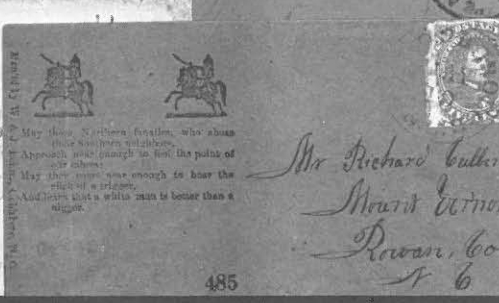 May those Northern fanatics, who abuse
their Southern neighbors,
Approach near enough to feel the point of
our sabres;
May they come near enough to hear the
click of a trigger,
And learn that a white man is better than a
nigger.
485
Mr Richard
Mount Vernon
Rowan, Co
N C